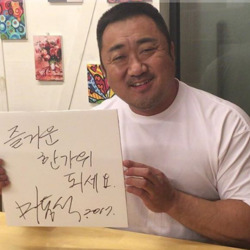 즐거운
한가위
되세요.
마동석 2017.